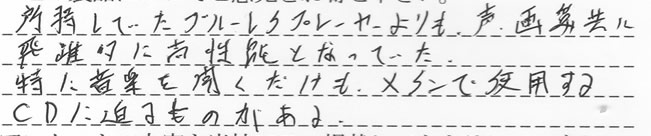 所持していたブルーレイプレーヤーよりも、声、画質共に
飛躍的に高性能となっていた。
特に音楽を聞くだけも、メインで使用する
CDに迫るものがある。